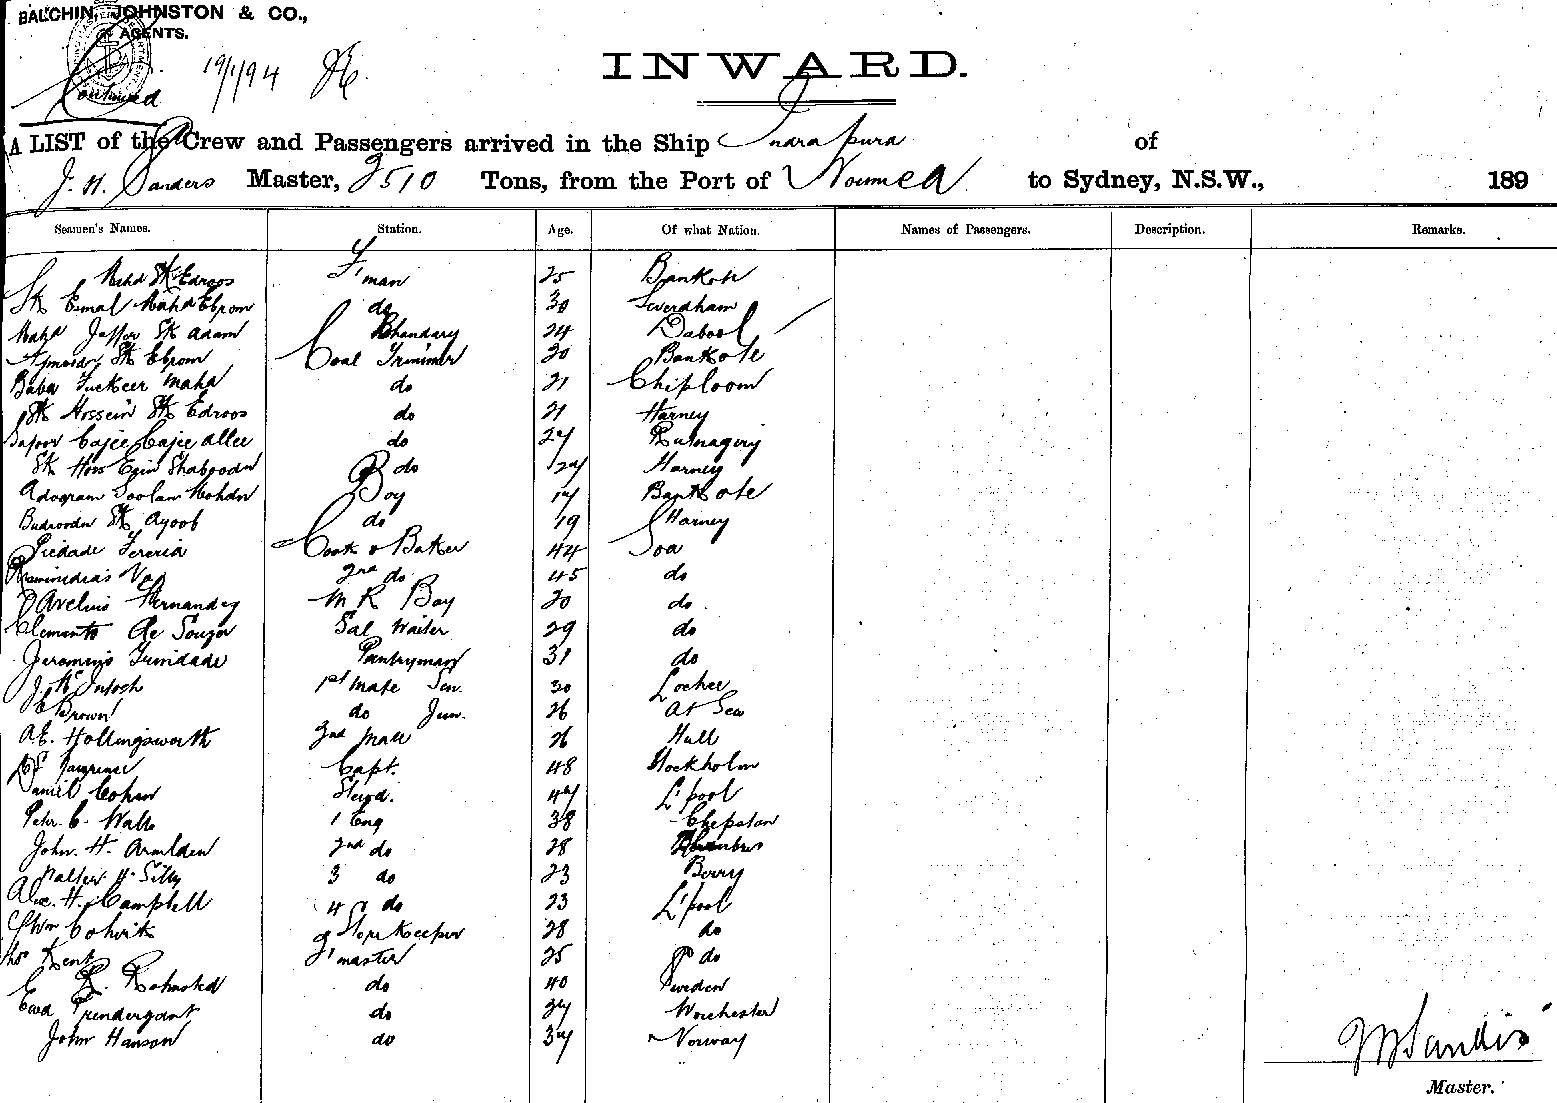 BALCHIN, JOHNSTON & CO.,
AGENTS.
19/1/94
Continued
INWARD.
A LIST of the Crew and Passengers arrived in the Ship Inarapura of
J. H. Sanders Master, 3510 Tons, from the Port of Noumea to Sydney, N.S.W., 189
Seamen's Names. Station. Age. Of what Nation. Names of Passengers. Description. Remarks.
Mahd Sk Edroos F'man 25 Bankote
Sk Esmal Mahd Ebrom do 30 Severdham
Mahd Jaffer Sk Adam Bhandary 24 Dabool
Sk Ebrom Coal Trimmer 20 Bankote
Baba Fuckeer Mahd do 21 Chiploom
Sk Hossein Sk Edroos do 21 Harney
Cajee Cajee Allee do 27 Rutnagery
Sk do 24 Harney
Boy 17 Bankote
Budroodn Sk Ayoob do 19 Harney
Piedade Fereria Cook & Baker 44 Goa
Vaz 2nd do 45 do
Avelino Fernandez M R Boy 20 do
Clemento De Souza Sal Waiter 29 do
Jeromino Trinidade Pantryman 31 do
J McIntosh 1st Mate Sen. 30 Locher
Brown do Jun. 26 At Sea
A.E. Hollingsworth 2nd Mate 26 Hull
Capt. 48 Stockholm
Daniel Cohan Stewd. 47 L'pool
Peter C. Walls 1 Eng 38 Chepstow
John. H. Armlden 2nd do 28
Walter H. Silly 3 do 23 Barry
Alex. H. Campbell 4 do 23 L'pool
Wm Store Keeper 28 do
Thos Kent Q'master 25 do
do 40 Sweden
Ewd Prendergant do 27 Worchester
John Hanson do 37 Norway
J H Sandis
Master.